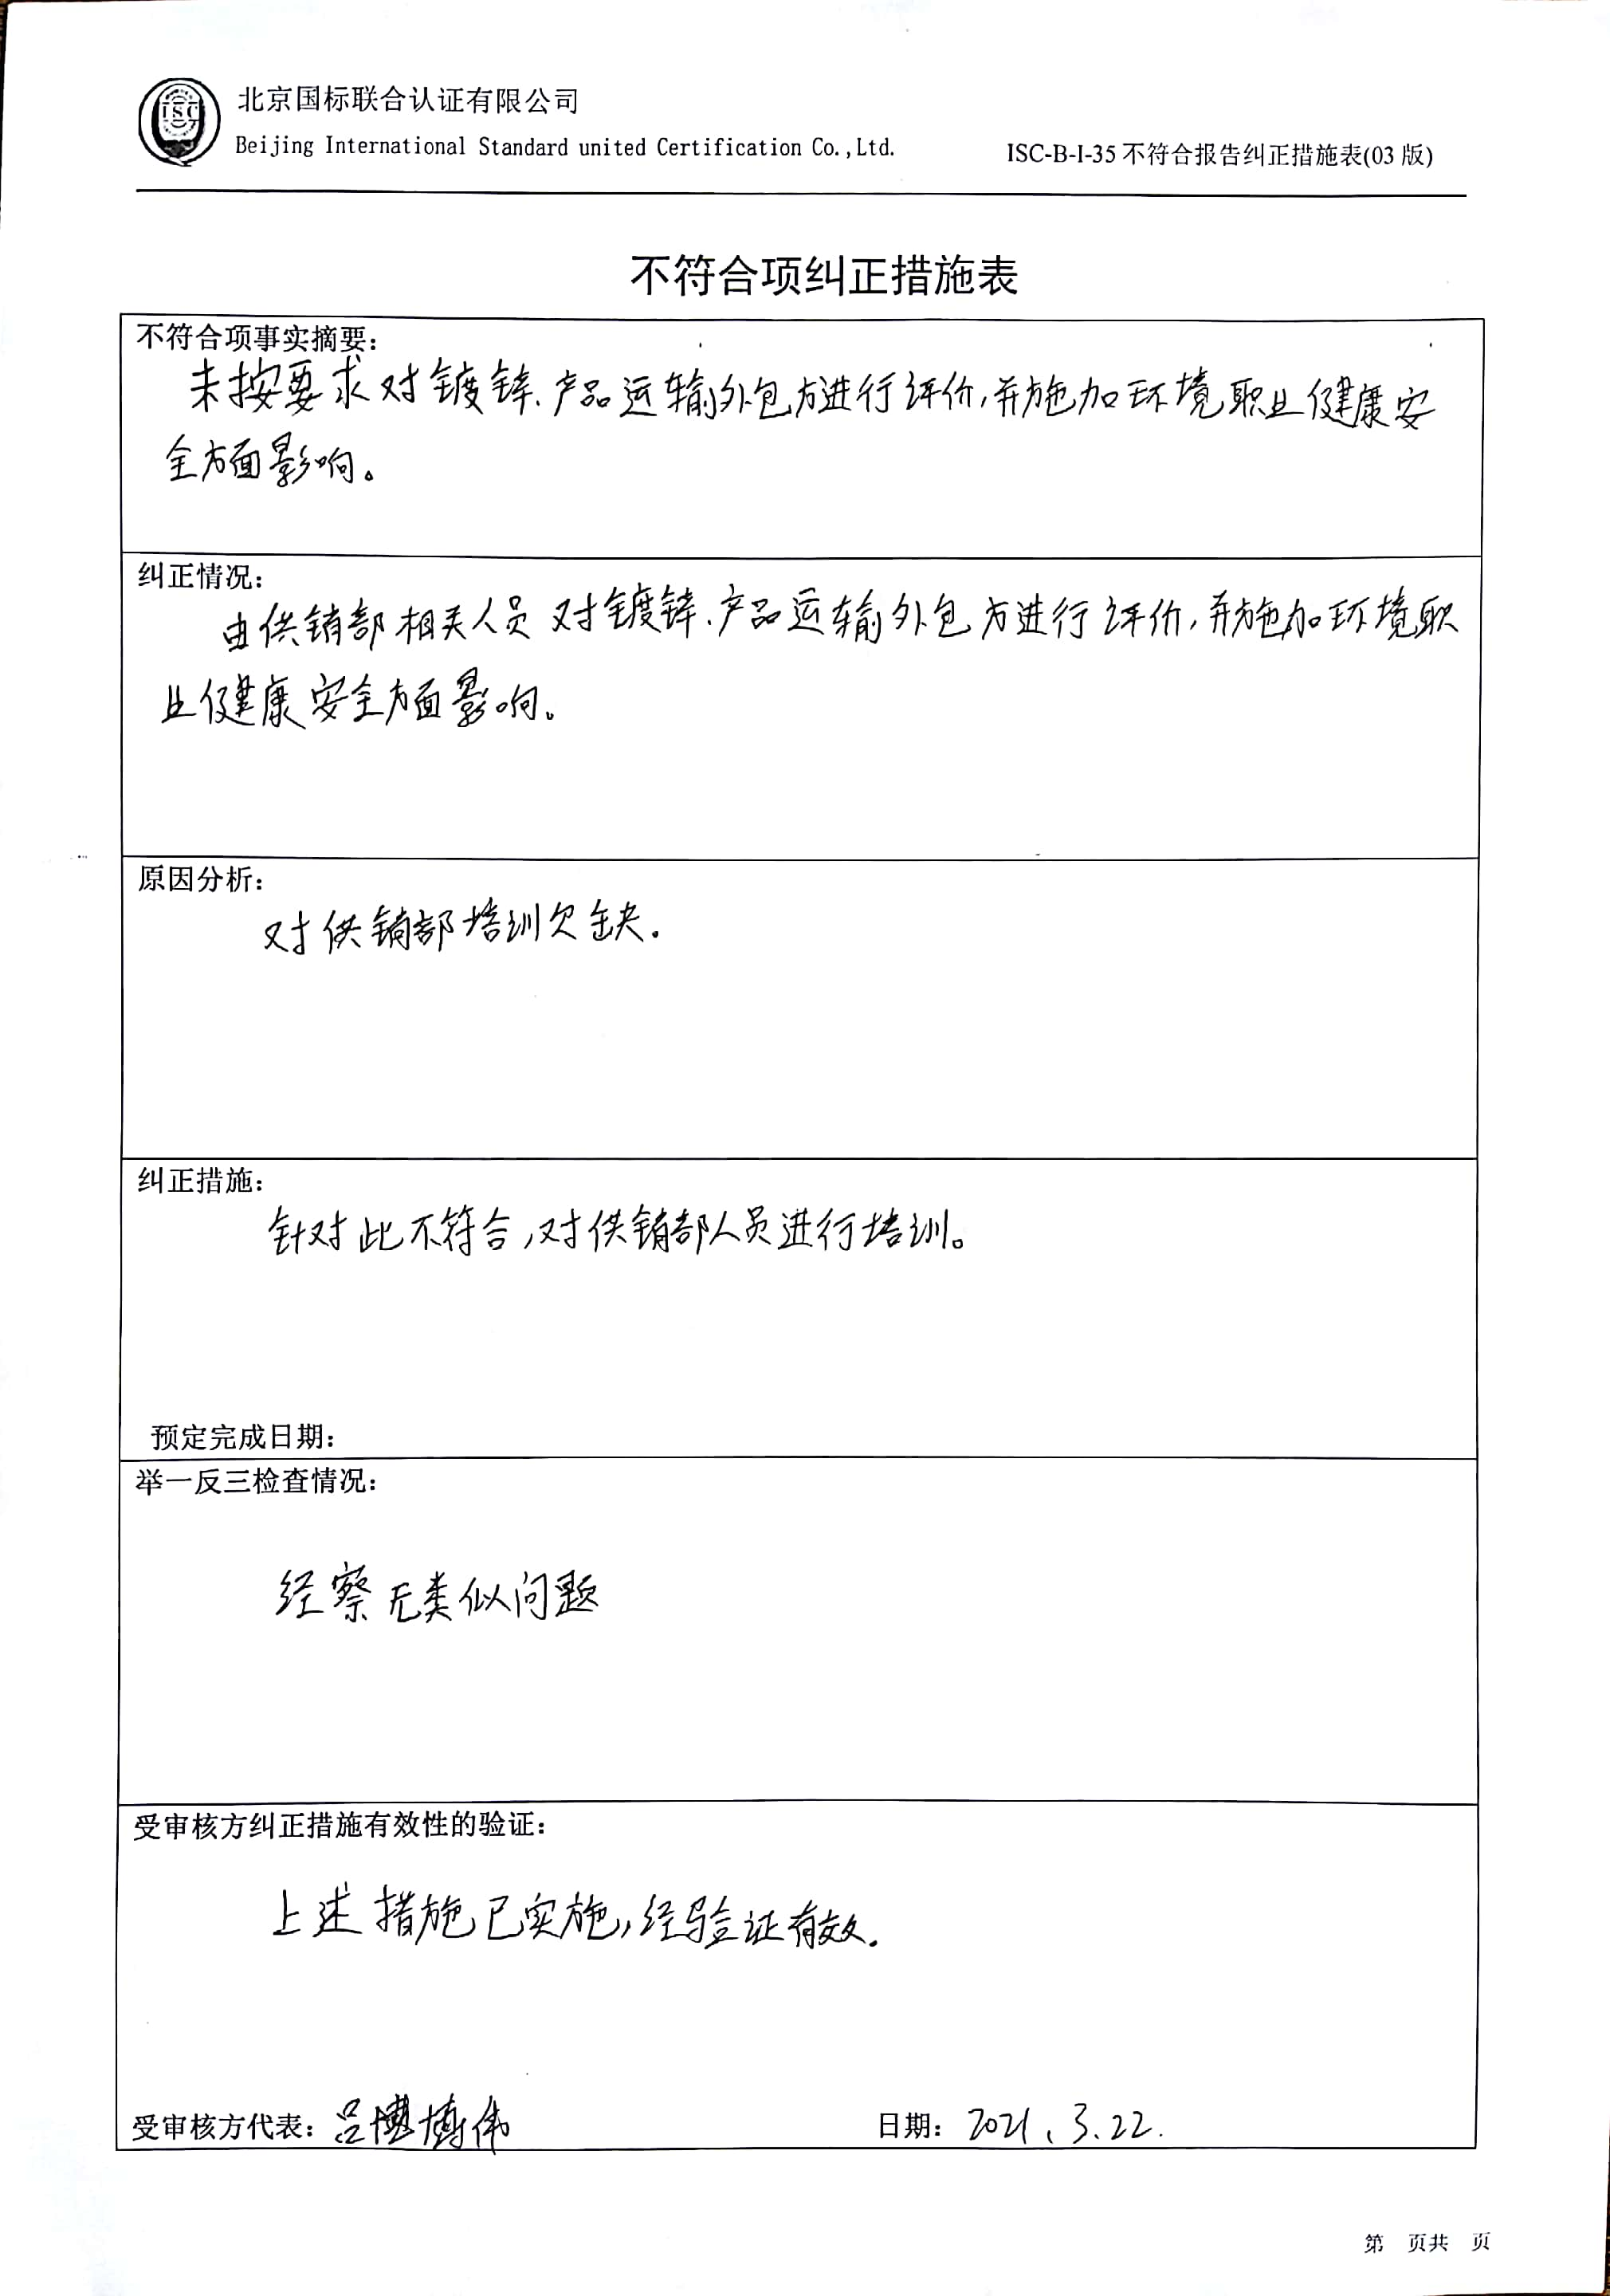 ISC
北京国标联合认证有限公司
Beijing International Standard united Certification Co.,Ltd.
ISC-B-I-35 不符合报告纠正措施表(03 版)
不符合项纠正措施表
不符合项事实摘要：
未按要求对镀锌、产品运输外包方进行评价,并施加环境职业健康安
全方面影响。
纠正情况：
由供销部相关人员对镀锌、产品运输外包方进行评价,并施加环境职
业健康安全方面影响。
原因分析：
对供销部培训欠缺.
纠正措施：
针对此不符合,对供销部人员进行培训。
预定完成日期：
举一反三检查情况：
经察无类似问题
受审核方纠正措施有效性的验证：
上述措施已实施,经验证有效.
受审核方代表：吕博伟
日期：2021、3.22.
第 页共 页